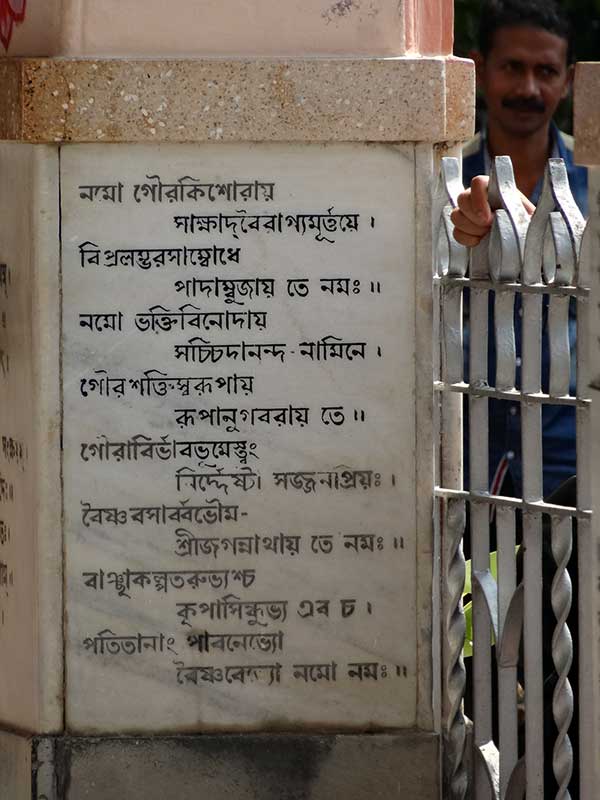 নমো গৌরকিশোরায়
সাক্ষাদ্‌বৈরাগ্যমূর্ত্তয়ে ।
বিপ্রলম্ভরসাম্বোধে
পাদাম্বুজায় তে নমঃ ॥
নমো ভক্তিবিনোদায়
সচ্চিদানন্দ-নামিনে ।
গৌরশক্তিস্বরূপায়
রূপানুগবরায় তে ॥
গৌরাবির্ভাবভূমেস্ত্বং
নির্দ্দেষ্টা সজ্জনপ্রিয়ঃ ।
বৈষ্ণবসার্ব্বভৌম-
শ্রীজগন্নাথায় তে নমঃ ॥
বাঞ্ছাকল্পতরুভ্যশ্চ
কৃপাসিন্ধুভ্য এব চ ।
পতিতানাং পাবনেভ্যো
বৈষ্ণবেভ্যো নমো নমঃ ॥